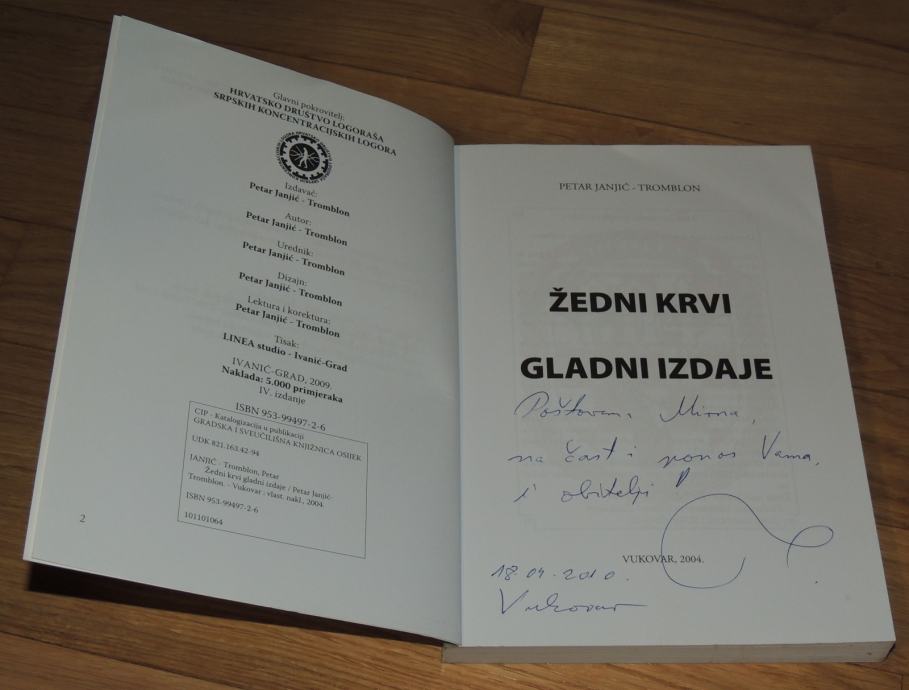 Glavni pokrovitelj:
HRVATSKO DRUŠTVO LOGORAŠA
SRPSKIH KONCENTRACIJSKIH LOGORA
Izdavač:
Petar Janjić - Tromblon
Autor:
Petar Janjić - Tromblon
Urednik:
Petar Janjić - Tromblon
Dizajn:
Petar Janjić - Tromblon
Lektura i korektura:
Petar Janjić - Tromblon
Tisak:
LINEA studio - Ivanić-Grad
IVANIĆ-GRAD, 2009.
Naklada: 5.000 primjeraka
IV. izdanje
ISBN 953-99497-2-6
CIP - Katalogizacija u publikaciji
GRADSKA I SVEUČILIŠNA KNJIŽNICA OSIJEK
UDK 821.163.42-94
JANJIĆ - Tromblon, Petar
Žedni krvi gladni izdaje / Petar Janjić-
Tromblon. - Vukovar : vlast. nakl., 2004.
ISBN 953-99497-2-6
101101064
2
PETAR JANJIĆ - TROMBLON
ŽEDNI KRVI
GLADNI IZDAJE
Poštovana Mirna,
na čast i ponos Vama,
i obitelji
VUKOVAR, 2004.
18.04.2010.
Vukovar